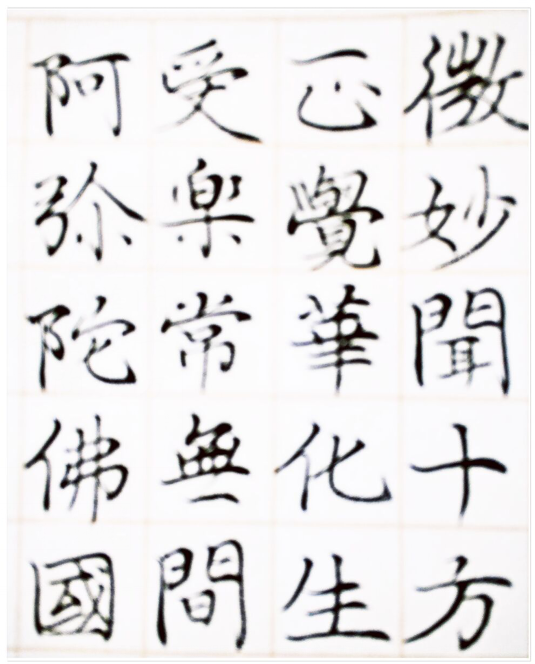 微妙聞十方
正覺華化生
受楽常無間
阿弥陀佛國